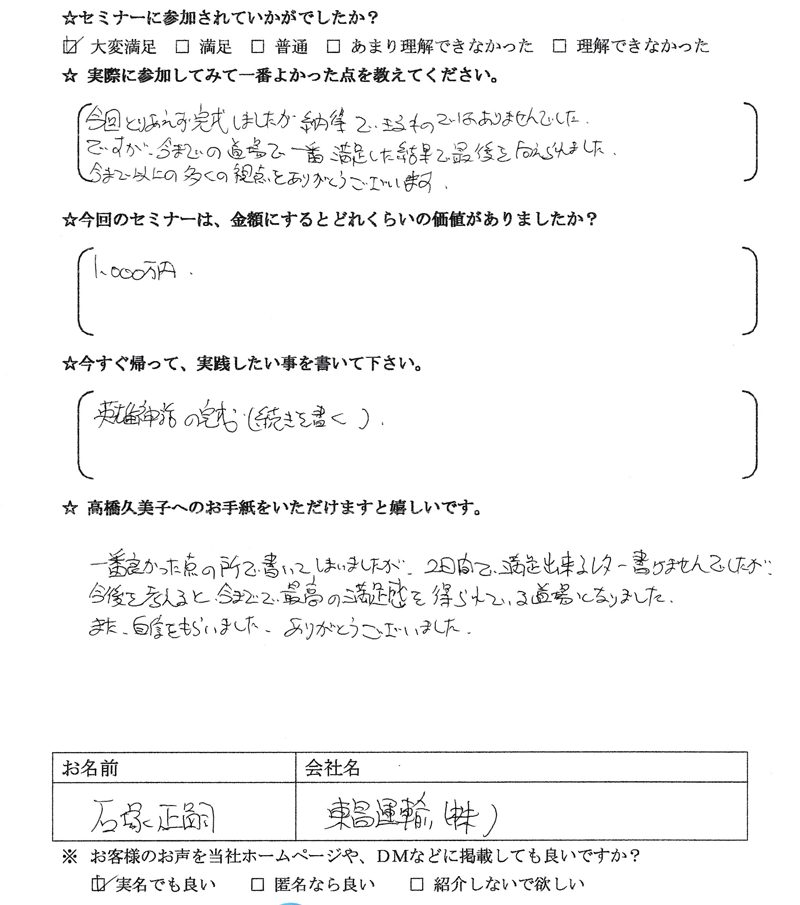 ☆セミナーに参加されていかがでしたか？
☑ 大変満足 □ 満足 □ 普通 □ あまり理解できなかった □ 理解できなかった
☆ 実際に参加してみて一番よかった点を教えてください。
今回とりあえず完成しましたが納得できるものではありませんでした.
ですが、今までの道場で一番満足した結果で最後を向えられました.
今まで以上の多くの視点をありがとうございます.
☆今回のセミナーは、金額にするとどれくらいの価値がありましたか？
1,000万円.
☆今すぐ帰って、実践したい事を書いて下さい。
英雄神話の完成(続きを書く).
☆ 高橋久美子へのお手紙をいただけますと嬉しいです。
一番良かった点の所で書いてしまいましたが、2日間で満足出来るレター書けませんでしたが、
今後を考えると今までで最高の満足感を得られている道場になりました.
また、自信をもらいました、ありがとうございました.
お名前 会社名
石塚正嗣 東昌運輸(株)
※ お客様のお声を当社ホームページや、DMなどに掲載しても良いですか？
☑実名でも良い □ 匿名なら良い □ 紹介しないで欲しい